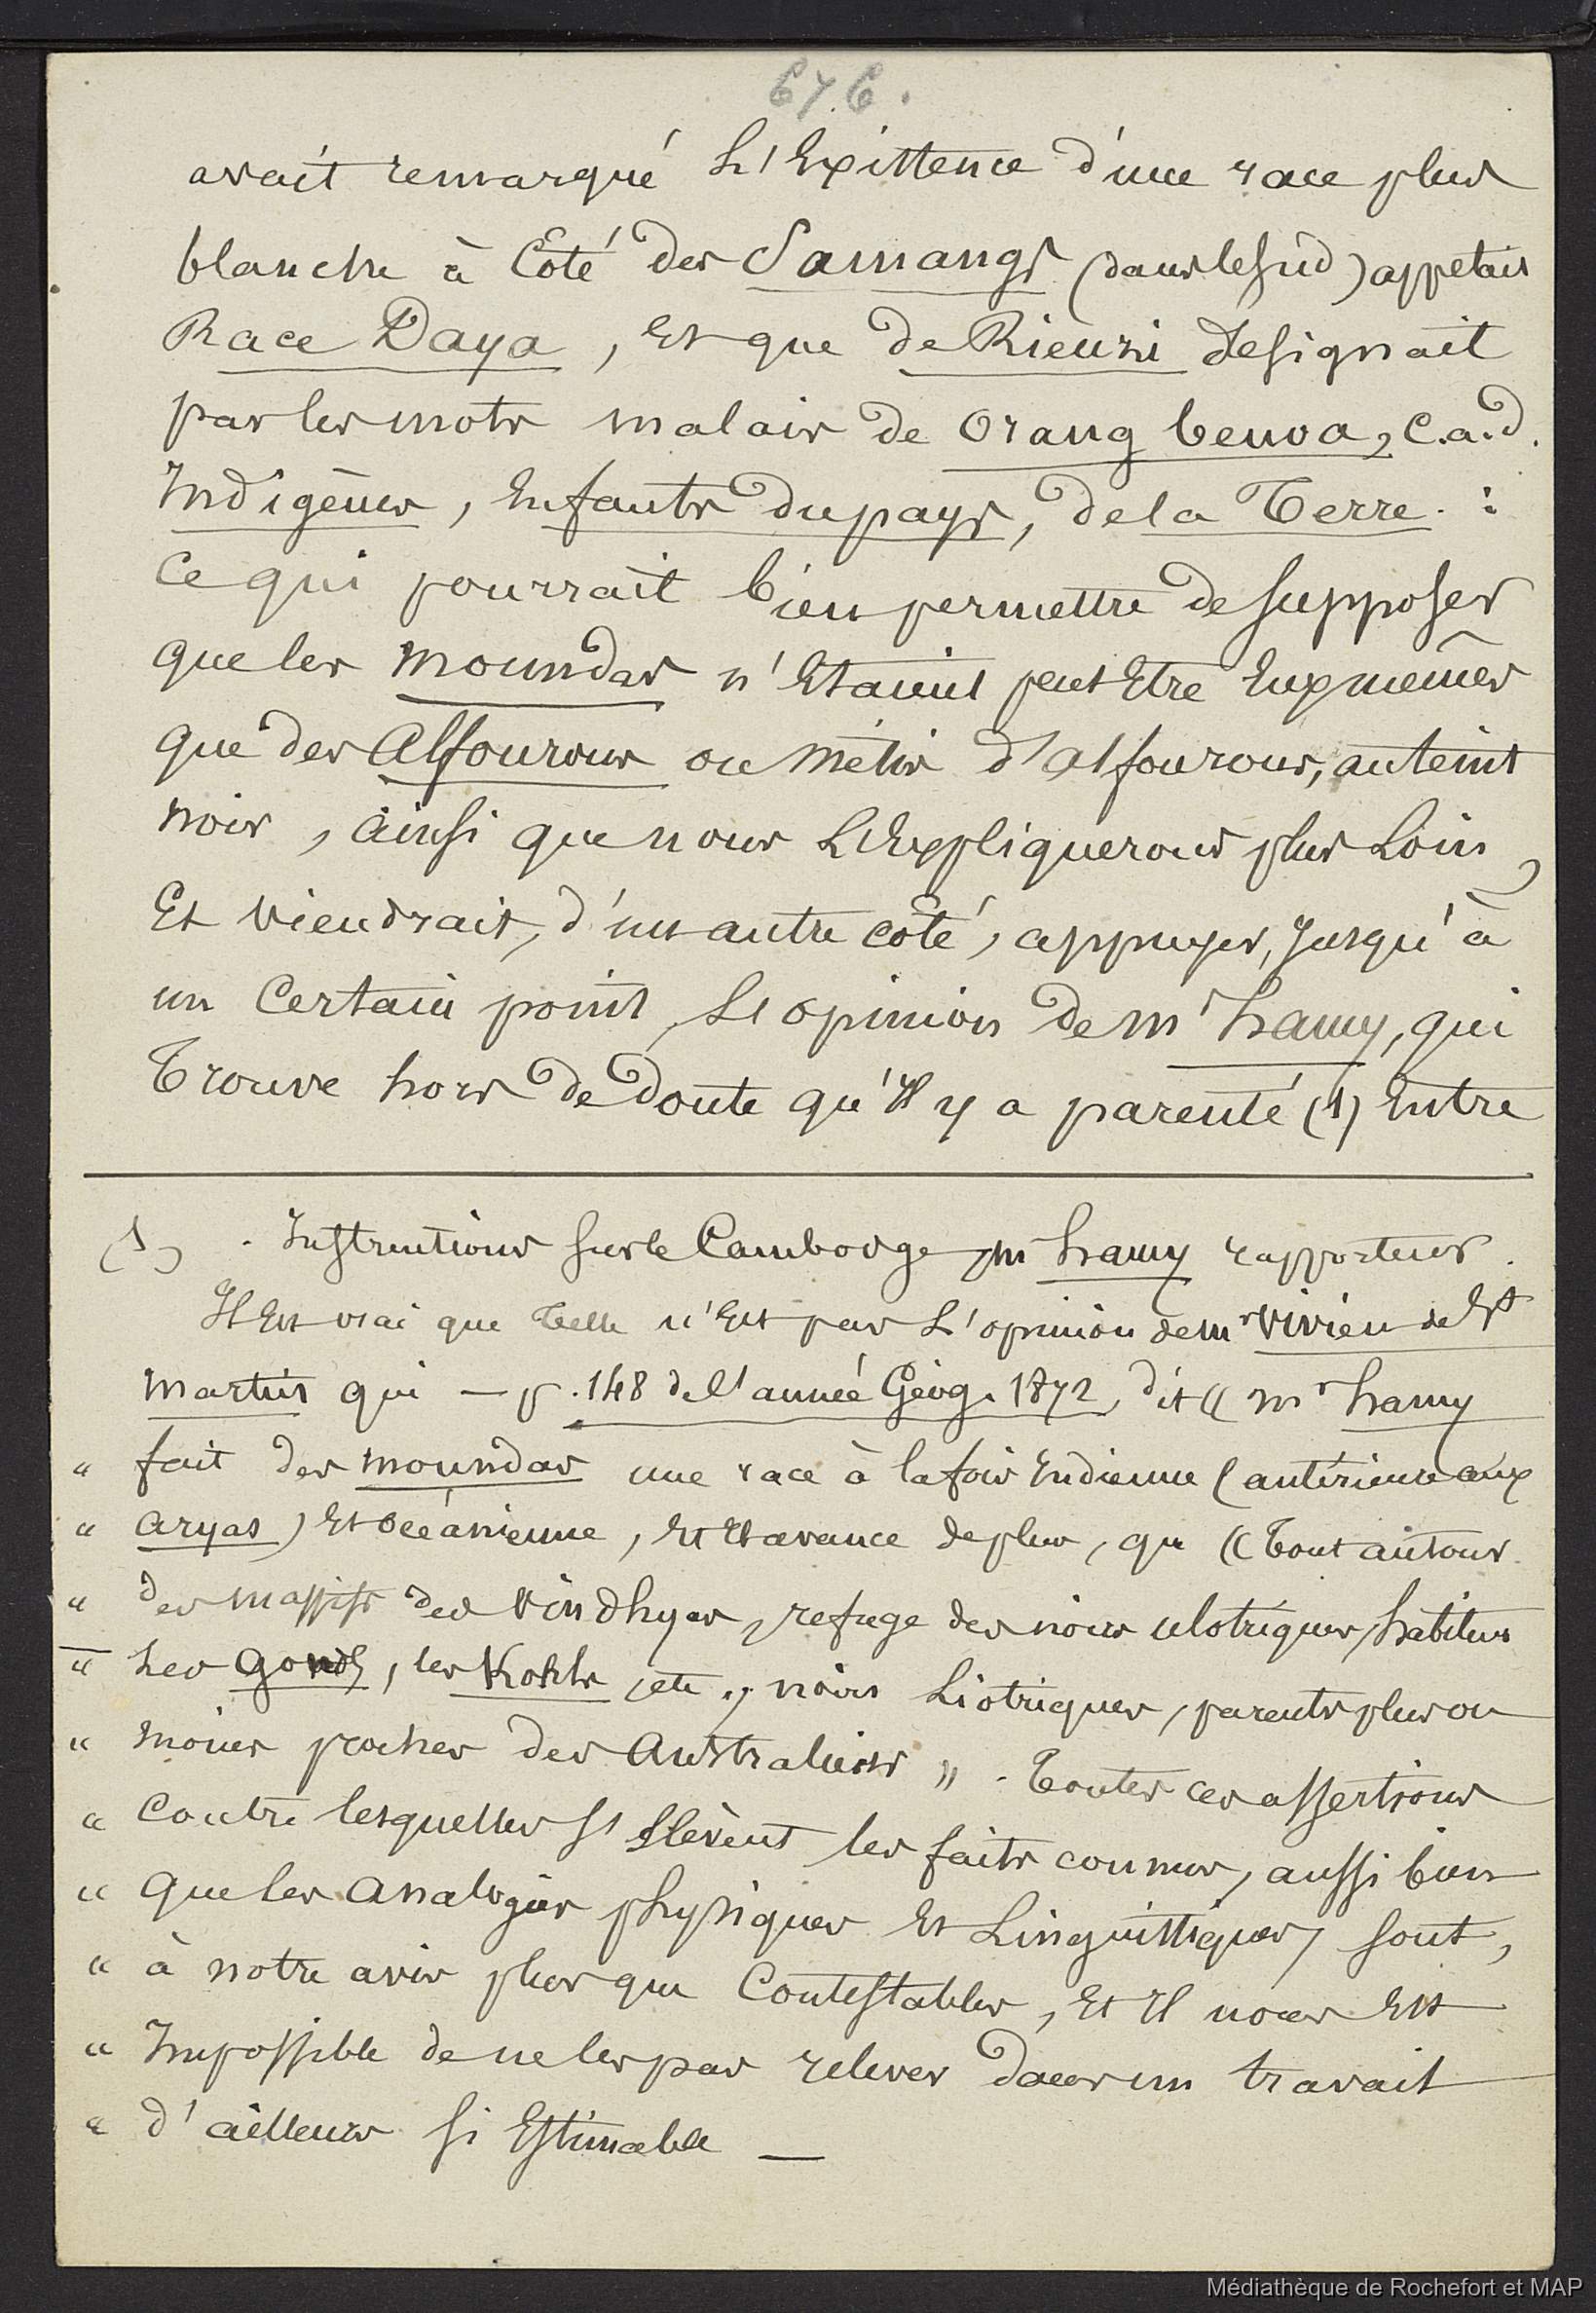 676.
avait remarqué L'Existence d'une race plus
blanche à Coté des Samangs (dans le sud) appelais
Race Daya, Et que de Rienzi designait
par les mots malais de Orang benoa, C.a.d.
Indigènes, Enfants du pays, de la Terre. :
Ce qui pourrait bien permettre de supposer
que les moundas n'Etaient peut Etre Eux mêmes
que des Alfourous ou Métis d'alfourous, au teint
noir, ainsi que nous L'Expliquerons plus Loin,
Et viendrait, d'un autre côté, appuyer, Jusqu'à
un Certain point, L'opinion de Mr hamy, qui
Trouve hors de doute qu'Il y a parenté (1) Entre
(1) . Instructions sur le Cambodge, Mr hamy rapporteur.
Il Est vrai que telle n'Est pas L'opinion de Mr Vivien de St
Martin qui — p. 148 de l'année Géog. 1872, dit (( Mr hamy
" fait des moundas une race à la fois Indienne (antérieure aux
" aryas) Et océanienne, Et Il avance de plus, que (( Tout autour
" des massifs des Vindhyas, refuge des noirs ulotriques, habitent
" Les Gonds, les Kohls, etc., noirs Liotriques, parents plus ou
" moins proches des Australiens )). Toutes ces assertions
" Contre lesquelles s'Elèvent les faits connus, aussi bien
" que les analogies physiques Et Linguistiques, sont,
" à notre avis plus que Contestables, Et Il nous Est
" Impossible de ne les pas relever dans un travail
" d'ailleurs si Estimable —
Médiathèque de Rochefort et MAP